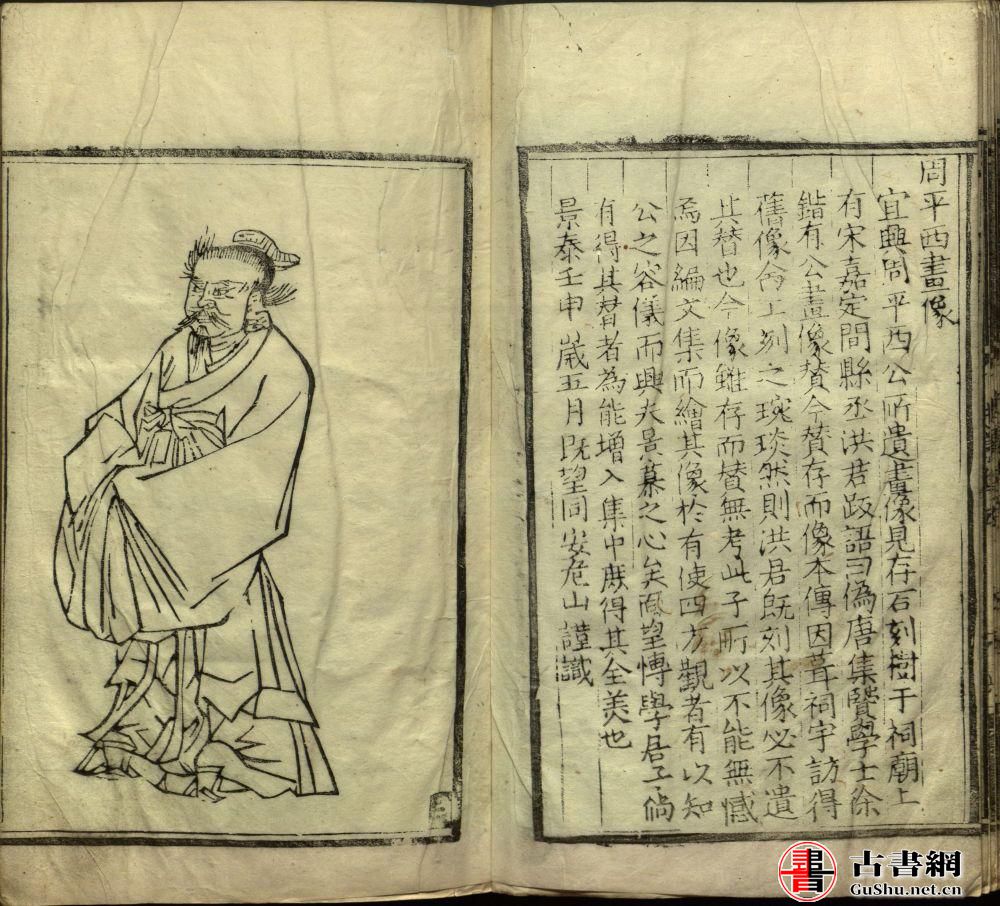 周平西畫像
宜興周平西公所遺畫像見存石刻樹于祠廟上
有宋嘉定間縣丞洪君跋語曰偽唐集賢學士徐
鍇有公畫像賛今賛存而像本傳因葺祠宇訪得
舊像命工刻之琬琰然則洪君既刻其像必不遺
其賛也今像雖存而賛無考此予所以不能無憾
焉因編文集而繪其像於有使四方觀者有以知
公之容儀而興夫景慕之心矣而望博學君子倘
有得其賛者為能增入集中庶得其全美也
景泰壬申歲五月既望同安危山謹識
書
古書網
GuShu.net.cn